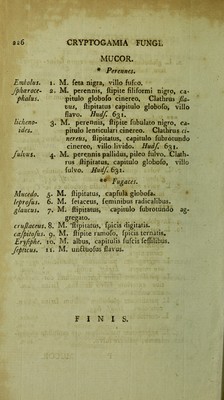 226 CRYPTOGAMIA FUNGI.
MUCOR.
* Perennes.
Embolus. 1. M. ſeta nigra, villo fuſco.
ſphæroce- 2. M. perennis, ſtipite filiformi nigro, ca-
phalus. pitulo globoſo cinereo. Clathrus fla-
vus, ſtipitatus capitulo globoſo, villo
flavo. Hudſ. 631.
licheno- 3. M. perennis, ſtipite ſubulato nigro, ca-
ides. pitulo lenticulari cinereo. Clathrus ci-
nereus, ſtipitatus, capitulo ſubrotundo
cinereo, villo livido. Hudſ. 631.
fulvus. 4. M. perennis pallidus, pileo fulvo. Clath-
rus ſtipitatus, capitulo globoſo, villo
fulvo. Hudſ. 631.
** Fugaces.
Mucedo. 5. M. ſtipitatus, capſulâ globoſa.
leproſus. 6. M. ſetaceus, ſeminibus radicalibus.
glaucus. 7. M. ſtipitatus, capitulo ſubrotundo ag-
gregato.
cruſtaceus. 8. M. ſtipitatus, ſpicis digitatis.
cæſpitoſus. 9. M. ſtipite ramoſo, ſpicis ternatis.
Eryſiphe. 10. M. albus, capitulis fuſcis ſeſſilibus.
ſepticus. 11. M. unctuoſus flavus.
FINIS.